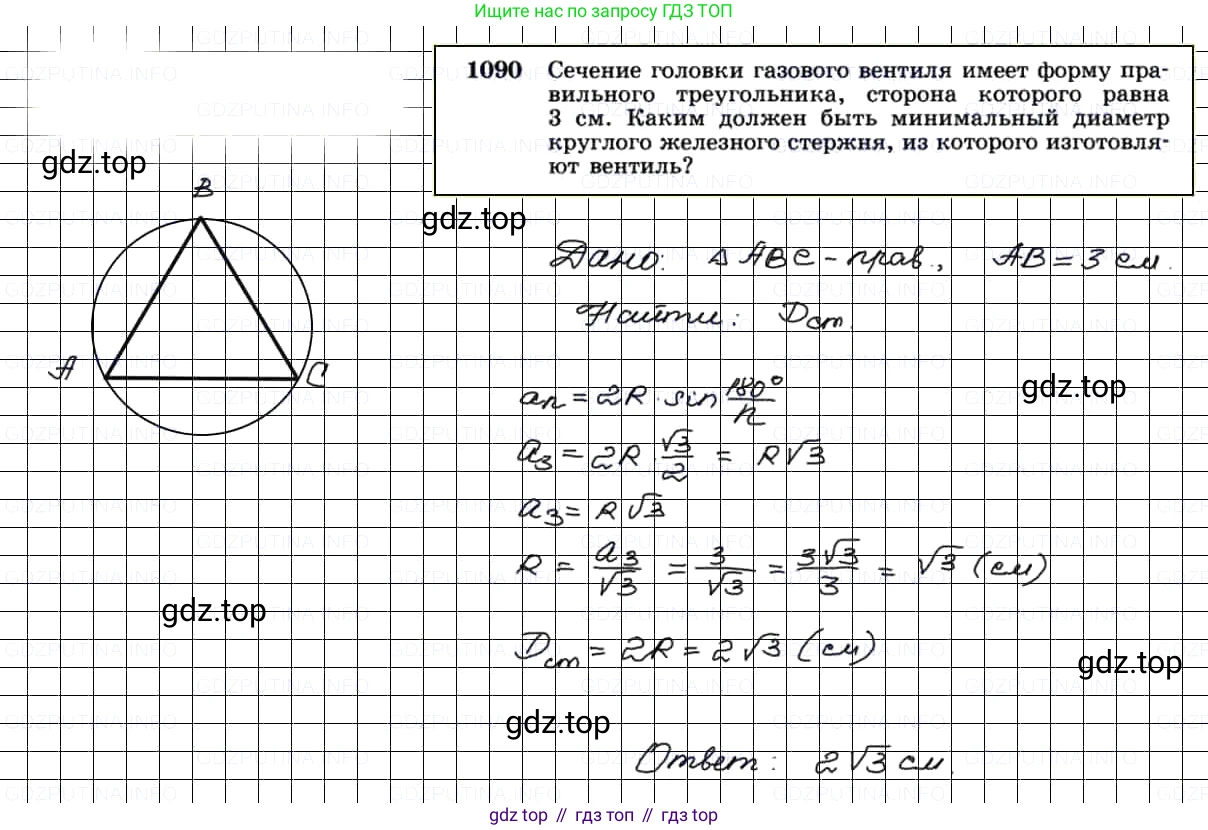 Ищите нас по запросу ГДЗ ТОП
1090 Сечение головки газового вентиля имеет форму пра-
вильного треугольника, сторона которого равна
3 см. Каким должен быть минимальный диаметр
круглого железного стержня, из которого изготовля-
ют вентиль?
gdz.top
gdz.top
B
A
C
Дано: Δ ABC - прав., AB = 3 см.
Найти: Dст.
aₙ = 2R · sin 180°/n
gdz.top
a₃ = 2R · √3/2 = R√3
a₃ = R√3
R = a₃/√3 = 3/√3 = 3√3/3 = √3 (см)
gdz.top
Dст = 2R = 2√3 (см)
gdz.top
gdz.top
Ответ: 2√3 см.
gdz top // гдз топ // gdz top